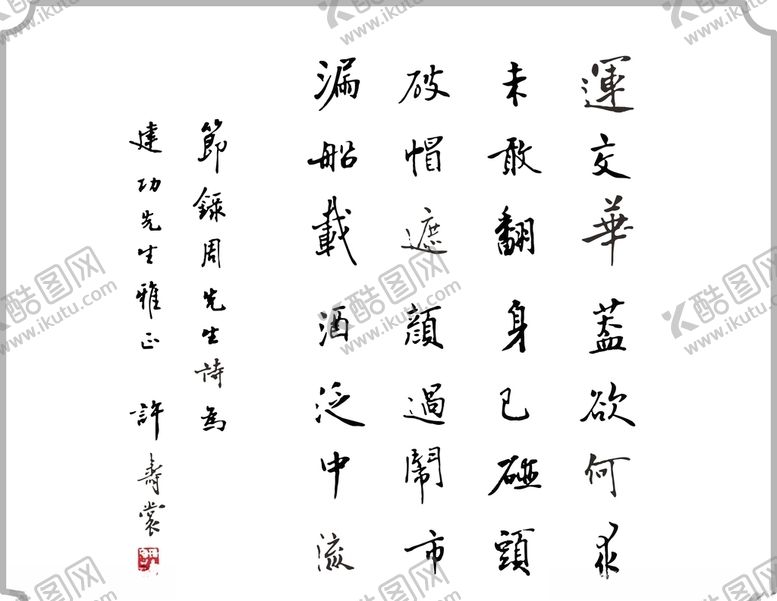 運交華蓋欲何求
未敢翻身已碰頭
破帽遮顏過鬧市
漏船載酒泛中流
節錄周先生詩為
建功先生雅正 許壽裳
酷图网
www.ikutu.com